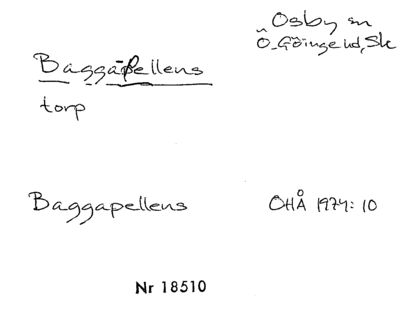 Osby sn
Ö. Göinge hd, Sk
Baggapellens
torp
Baggapellens
ÖHÅ 1974: 10
Nr 18510